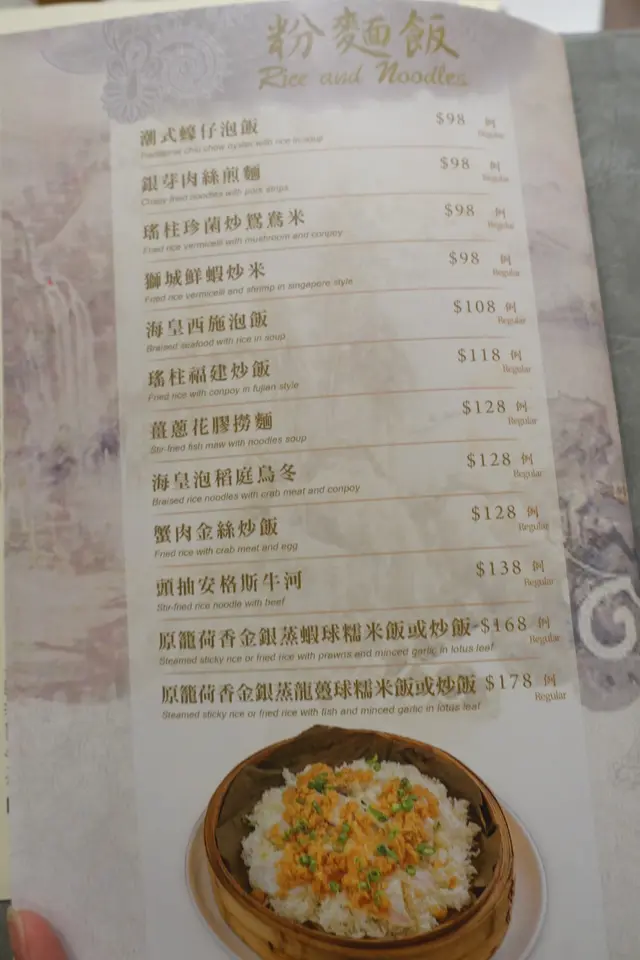 粉麵飯
Rice and Noodles
潮式蠔仔泡飯 $98 例
Regular
銀芽肉絲煎麵 $98 例
Crispy fried noodles with pork strips Regular
瑤柱珍菌炒鴛鴦米 $98 例
Fried rice vermicelli with mushroom and conpoy Regular
獅城鮮蝦炒米 $98 例
Fried rice vermicelli and shrimp in singapore style Regular
海皇西施泡飯 $108 例
Braised seafood with rice in soup Regular
瑤柱福建炒飯 $118 例
Fried rice with conpoy in fujian style Regular
薑蔥花膠撈麵 $128 例
Stir-fried fish maw with noodles soup Regular
海皇泡稻庭烏冬 $128 例
Braised rice noodles with crab meat and conpoy Regular
蟹肉金絲炒飯 $128 例
Fried rice with crab meat and egg Regular
頭抽安格斯牛河 $138 例
Stir-fried rice noodle with beef Regular
原籠荷香金銀蒸蝦球糯米飯或炒飯 $168 例
Steamed sticky rice or fried rice with prawns and minced garlic in lotus leaf Regular
原籠荷香金銀蒸龍躉球糯米飯或炒飯 $178 例
Steamed sticky rice or fried rice with fish and minced garlic in lotus leaf Regular